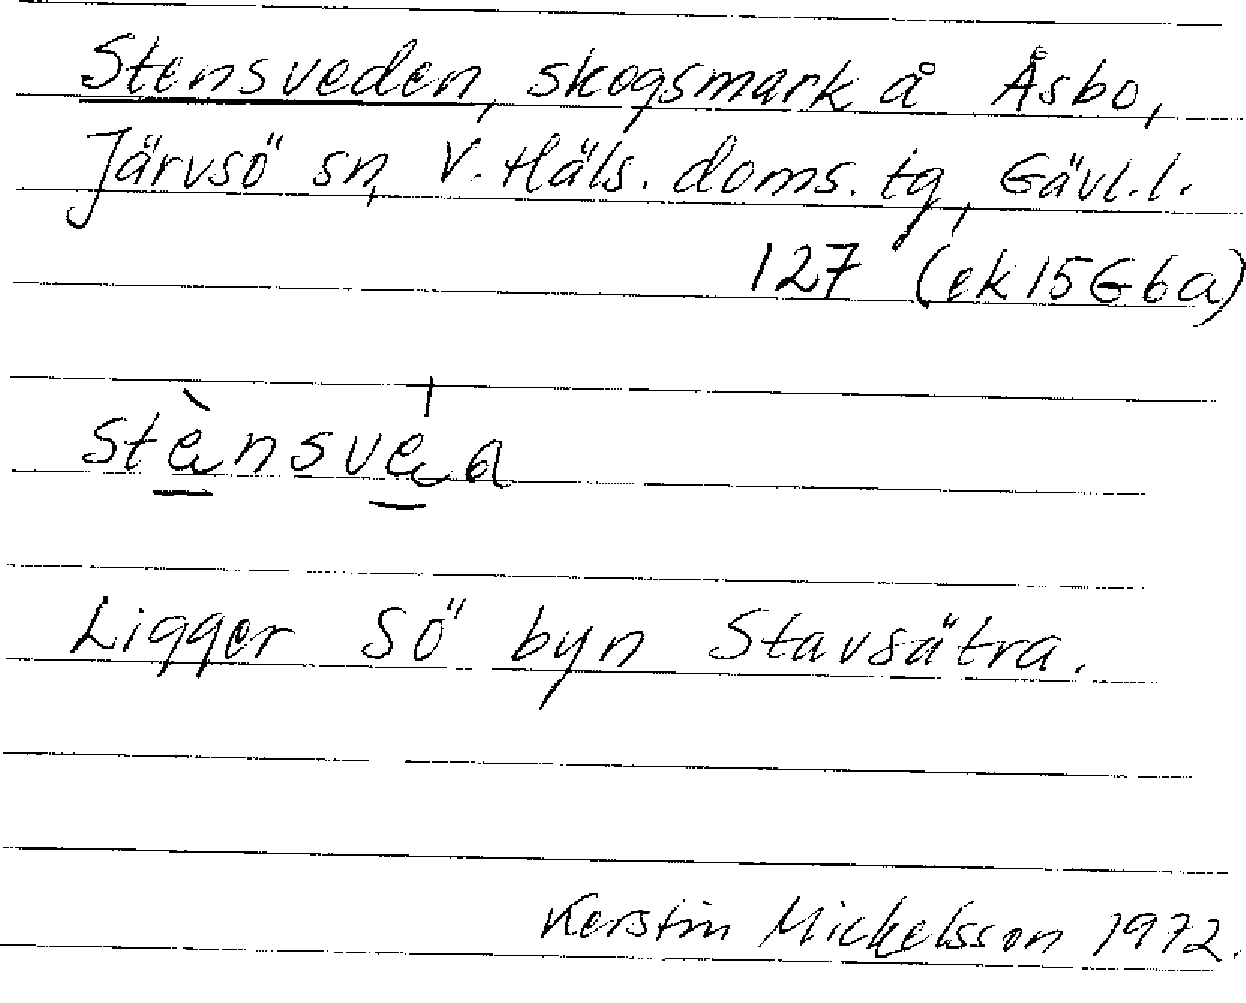 Stensveden, skogsmark å Åsbo,
Järvsö sn, V. Häls. doms. tg, Gävl. l.
127 (ek 15G6a)
stènsvéa
Ligger SÖ byn Stavsätra.
Kerstin Mickelsson 1972.